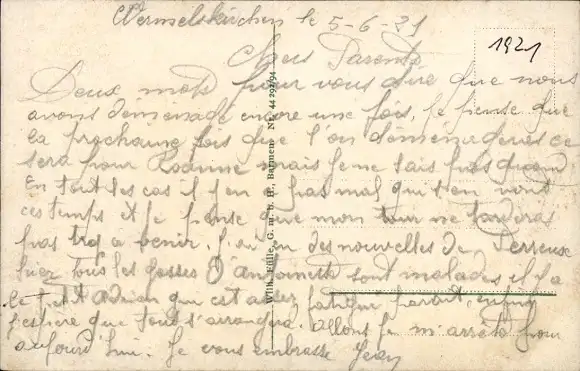 Wermelskirchen le 5-6-21
1921
Chers Parents
Deux mots pour vous dire que nous
avons déménagé encore une fois, je pense que
la prochaine fois que l'on déménageras ce
sera pour Roanne mais je ne sais pas quand
En tout les cas il y en a pas mal qui s'en vont
ces temps et je pense que mon tour ne tarderas
pas trop a venir. J'ai eu des nouvelles de Perreux
hier tous les gosses d'Antoinette sont malades il y a
le petit Adrian qui est assez fatigué parait, enfin
j'espère que tout s'arrangera. Allons je m'arrête pour
aujourd'hui. Je vous embrasse Jean
Wilh. Fülle, G. m. b. H., Barmen. Nr. 44 292/94